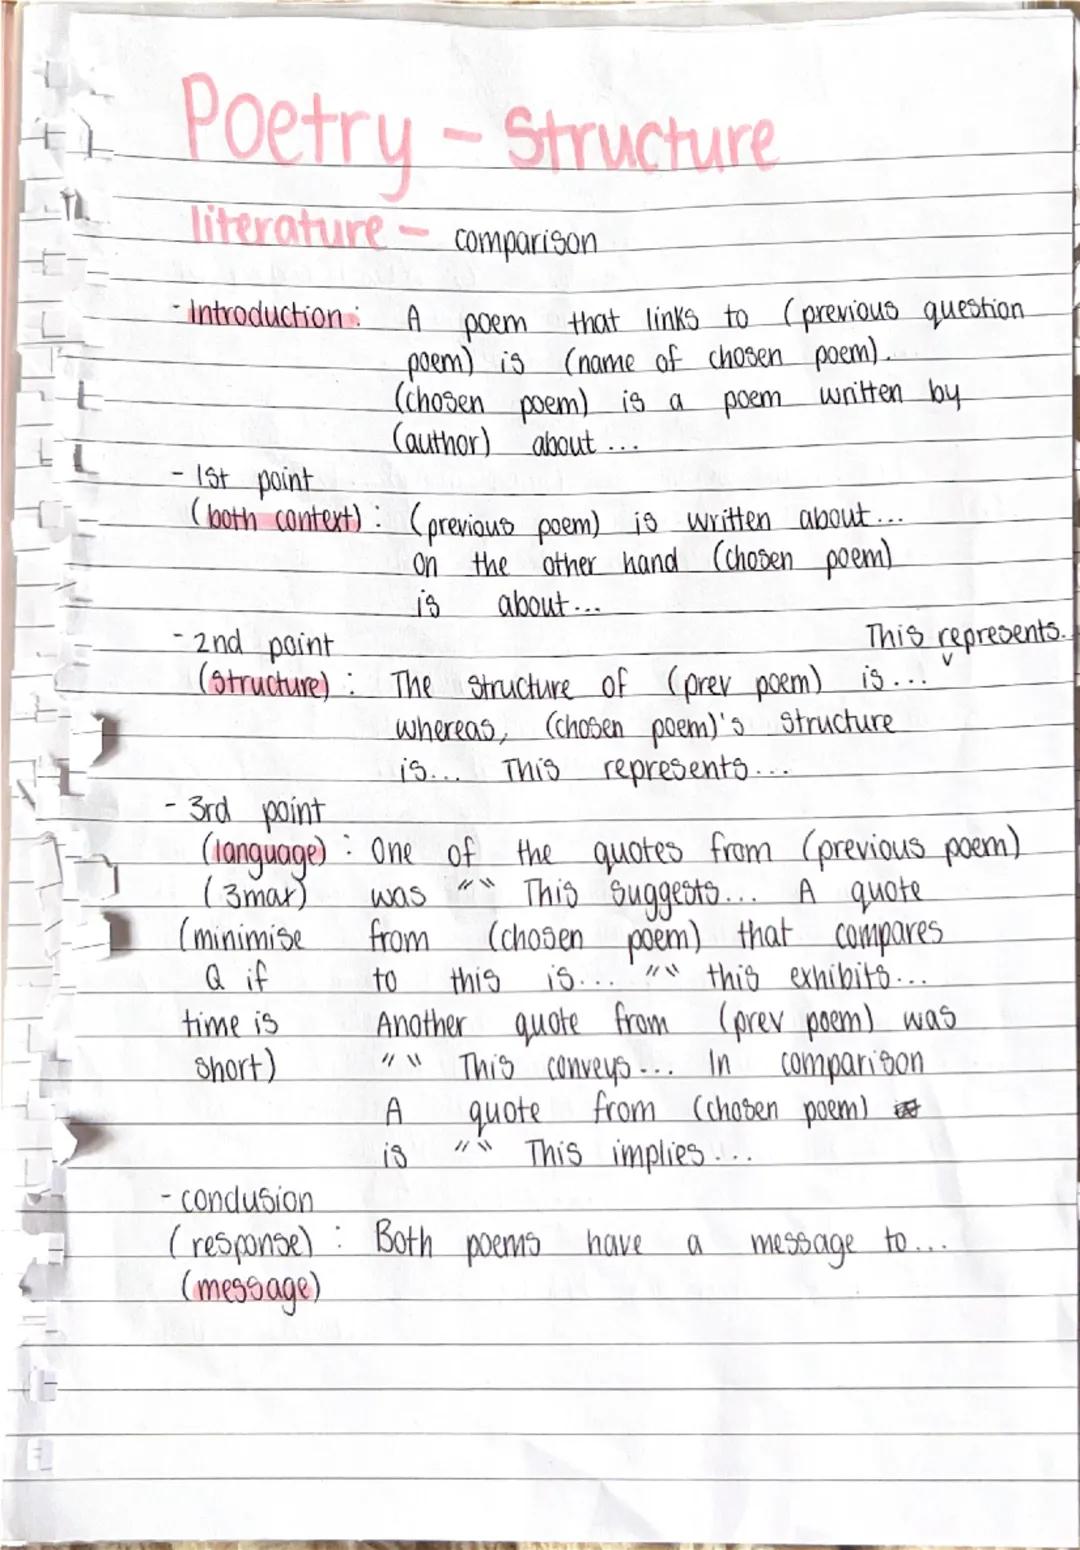 Poetry - Structure
literature - comparison
- Introduction: A poem that links to (previous question
poem) is (name of chosen poem).
(chosen poem) is a poem written by
(author) about...
- 1st point
(both context): (previous poem) is written about...
On the other hand (chosen poem)
is about...
- 2nd point This represents.
(structure): The structure of (prev poem) is... v
whereas, (chosen poem)'s structure
is... This represents...
- 3rd point
(language): One of the quotes from (previous poem)
(3max) was "" This suggests... A quote
(minimise from (chosen poem) that compares
Q if to this is... "" this exhibits...
time is Another quote from (prev poem) was
short) "" This conveys... In comparison
A quote from (chosen poem)
is "" This implies...
- conclusion
(response): Both poems have a message to...
(message)